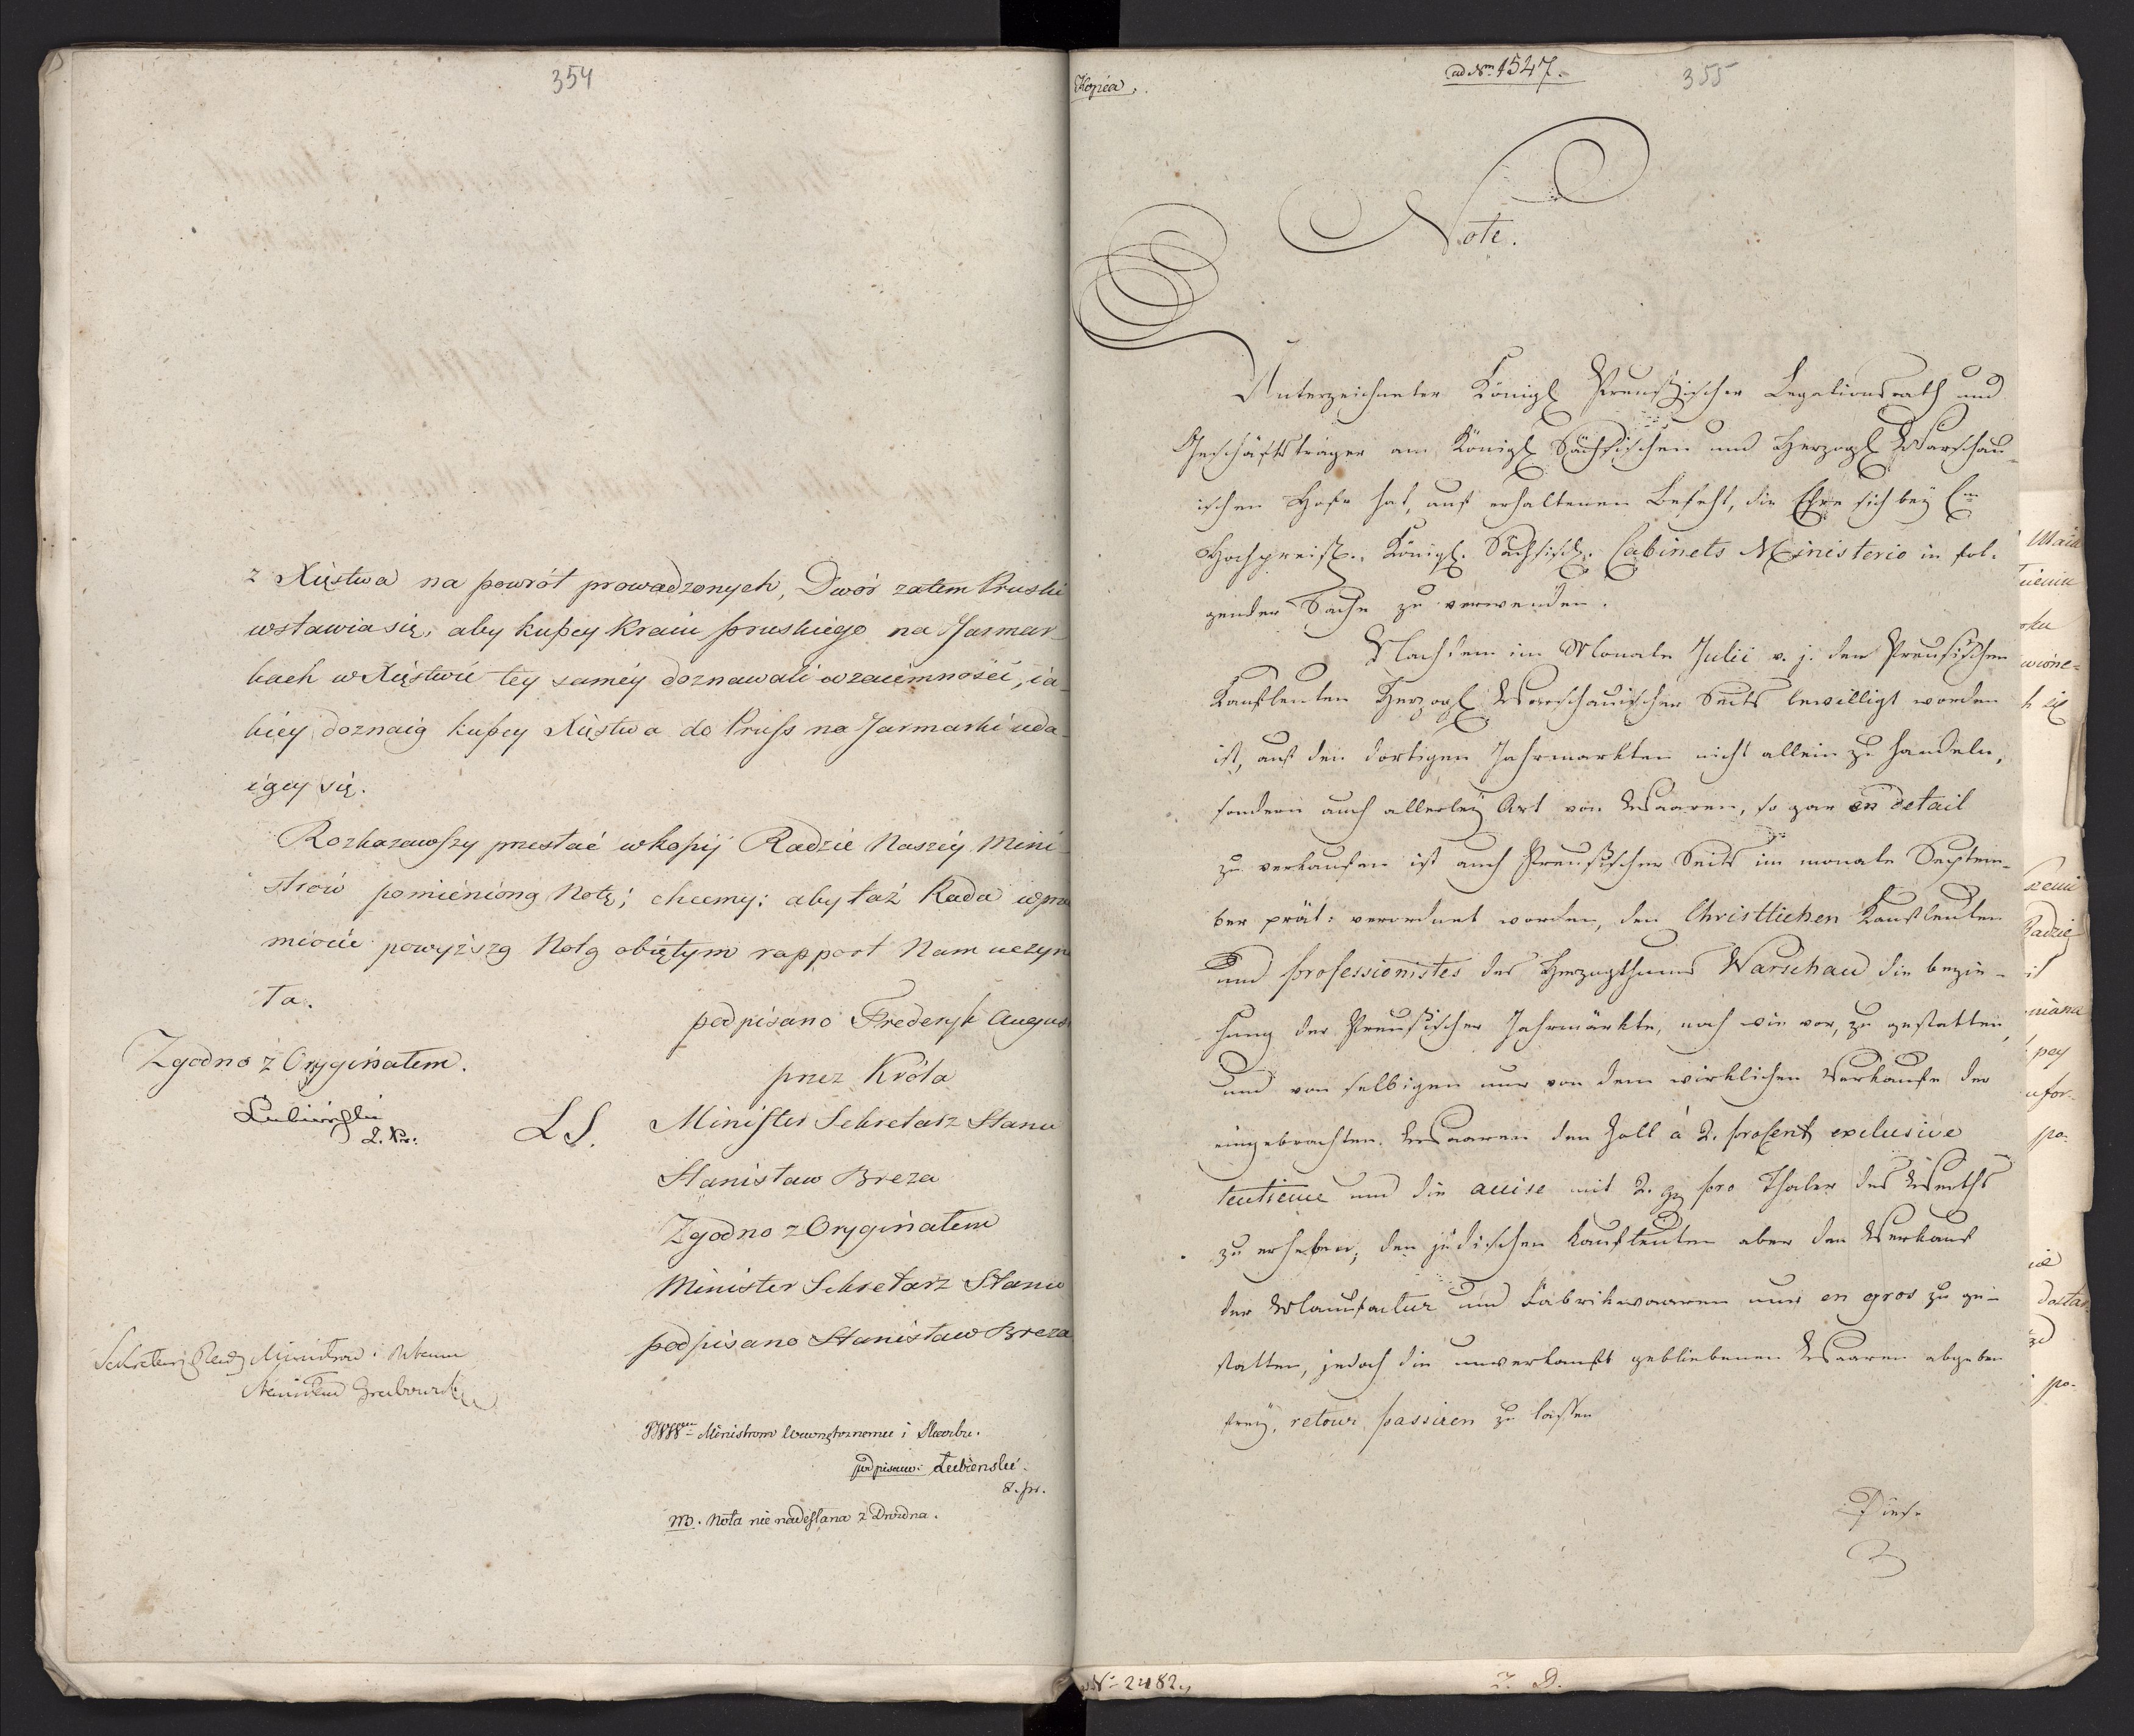 354
z Xięstwa na powrót prowadzonych, Dwór zatem Pruski
wstawia się, aby kupcy Kraiu pruskiego na Jarmar-
kach w Xięstwie tey saméy doznawali wzaiemności, ia-
kiéy doznaią kupcy Xięstwa do Pruss na Jarmarki uda-
iący się.
Rozkazawszy przesłać w kopij Radzie Naszéy Mini-
strów pomienioną Notę; chcemy: aby taż Rada w prze
miocie powyższą Notą obiętym rapport Nam uczyni
ła.
podpisano Frederyk Augus
Zgodno z Oryginałem.
przez Króla
Lubieński
L S. Minister Sekretarz Stanu
Stanisław Breza
Zgodno z Oryginałem
Minister Sekretarz Stanu
podpisano Stanisław Breza
Sekretarz Rady Ministrów i Stanu
Stanisław Grabowski
Ministrom Wewnętrznemu i Skarbu.
podpisano: Łubienski
NB. Nota nie nadesłana z Drezna.
Kopia.
ad Nm 1547.
355
Note.
Unterzeichneter Königl Preußischer Legationsrath und
Geschäftsträger am Königl Sächsischen und Herzogl Warschau-
ischen Hofe hat, auf erhaltenen Befehl, die Ehre sich bey Em
Hochpreißl. Königl. Sächsisch. Cabinets Ministerio in fol-
gender Sache zu verwenden.
Nachdem im Monate Julii v. j. den Preusischen
Kaufleuten Herzogl Warschauischer Seits bewilligt worden
ist, auf den dortigen Jahrmarkten nicht allein zu handeln,
sondern auch allerley Art von Waaren, so gar en detail
zu verkaufen ist auch Preußischer Seits im monate Septem-
ber prät: verordnet worden, den Christlichen Kaufleuten
und professionistes des Herzogthums Warschau die bezie-
hung der Preußischer Jahrmärkte, nach wie vor, zu gestatten,
und von selbigen nur von dem wirklichen Verkaufe der
eingebrachten Waaren den Zoll à 2. proCent exclusive
und die accise mit 2. gg pro Thaler des Werths
zu erheben, den jüdischen Kaufleuten aber den Verkauf
der Manufactur und Fabrikwaaren nur en gros zu ge-
statten, jedoch die unverkauft gebliebenen Waaren abgaben
frey, retour passiren zu lassen
Diese
No 2482.